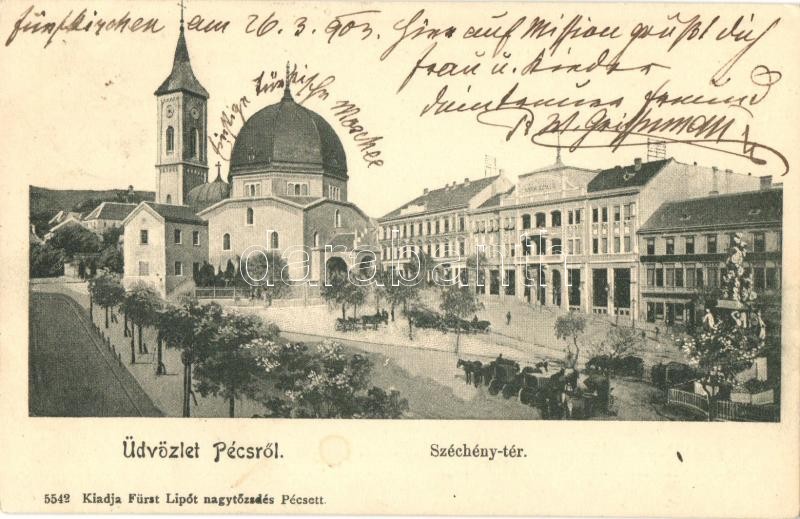 Fünfkirchen am 26.3.903.
Hier auf Mission grüßt dich
Frau u. Kinder
dein treuer Freund
einstige türkische Moschee
darabanth.com
Üdvözlet Pécsről.
Széchény-tér.
5542 Kiadja Fürst Lipót nagytőzsdés Pécsett.